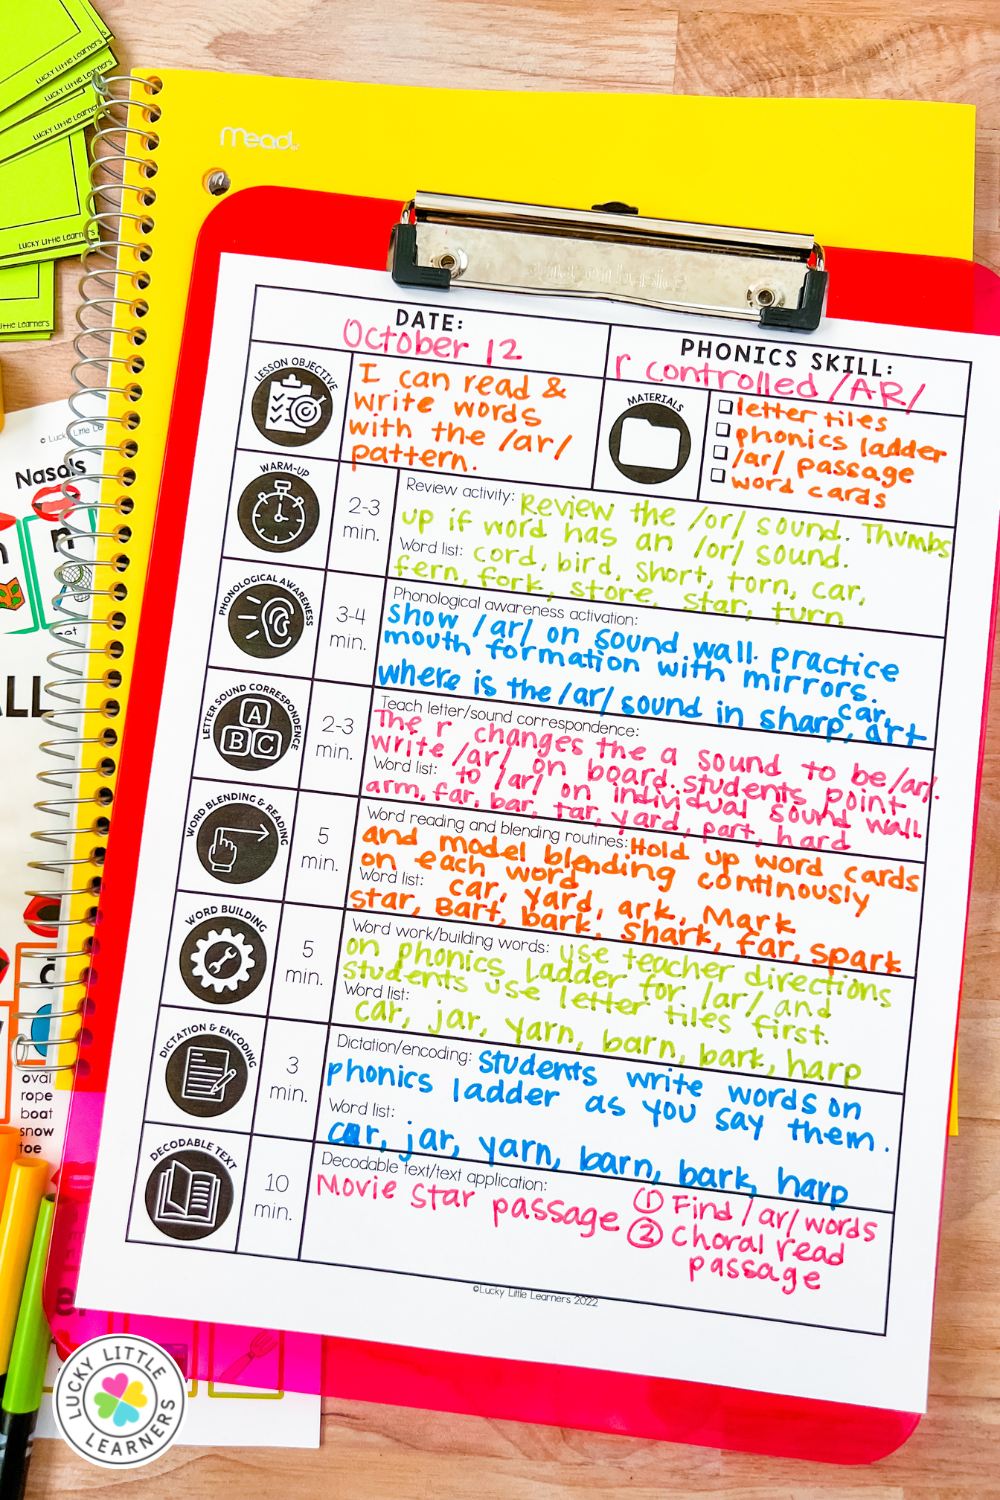 LUCKY LITTLE LEARNERS
LUCKY LITTLE LEARNERS
LUCKY LITTLE LEARNERS
LUCKY LITTLE LEARNERS
Mead
DATE:
October 12
PHONICS SKILL:
r controlled /AR/
LESSON OBJECTIVE
I can read &
write words
with the /ar/
pattern.
MATERIALS
letter tiles
phonics ladder
/ar/ passage
word cards
WARM-UP
2-3
min.
Review activity: Review the /or/ sound. Thumbs
up if word has an /or/ sound.
Word list: cord, bird, short, torn, car,
fern, fork, store, star, turn
PHONOLOGICAL AWARENESS
3-4
min.
Phonological awareness activation:
Show /ar/ on sound wall. practice
mouth formation with mirrors.
where is the /ar/ sound in sharp, car, art
LETTER SOUND CORRESPONDENCE
A
B C
2-3
min.
Teach letter/sound correspondence:
The r changes the a sound to be /ar/.
write /ar/ on board. students point
to /ar/ on individual sound wall
Word list:
arm, far, bar, tar, yard, part, hard
WORD BLENDING & READING
5
min.
Word reading and blending routines: Hold up word cards
and model blending continously
on each word
Word list: car, yard, ark, Mark
star, Bart, bark, shark, far, spark
WORD BUILDING
5
min.
Word work/building words: use teacher directions
on phonics ladder for /ar/ and
students use letter tiles first.
Word list:
car, jar, yarn, barn, bark, harp
DICTATION & ENCODING
3
min.
Dictation/encoding: Students write words on
phonics ladder as you say them.
Word list:
car, jar, yarn, barn, bark, harp
DECODABLE TEXT
10
min.
Decodable text/text application:
Movie Star passage
① Find /ar/ words
② Choral read
passage
©Lucky Little Learners 2022
Nasals
n
oval
rope
boat
snow
toe
LUCKY LITTLE LEARNERS